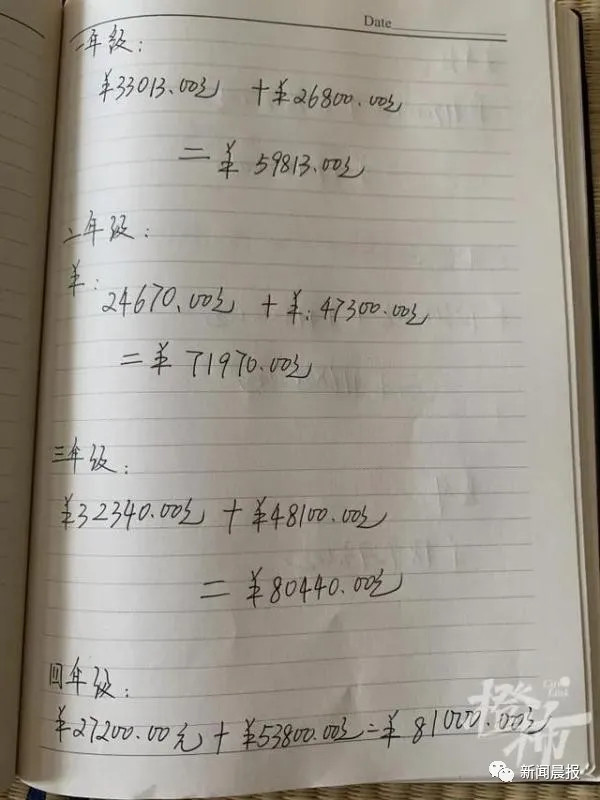 Date
一年级：
¥33013.00元 +¥26800.00元
=¥ 59813.00元
二年级：
¥:
24670.00元 +¥:47300.00元
=¥ 71970.00元
三年级：
¥32340.00元 +¥48100.00元
=¥80440.00元
四年级：
¥27200.00元+¥53800.00元=¥81000.00元
橙柿
新闻晨报